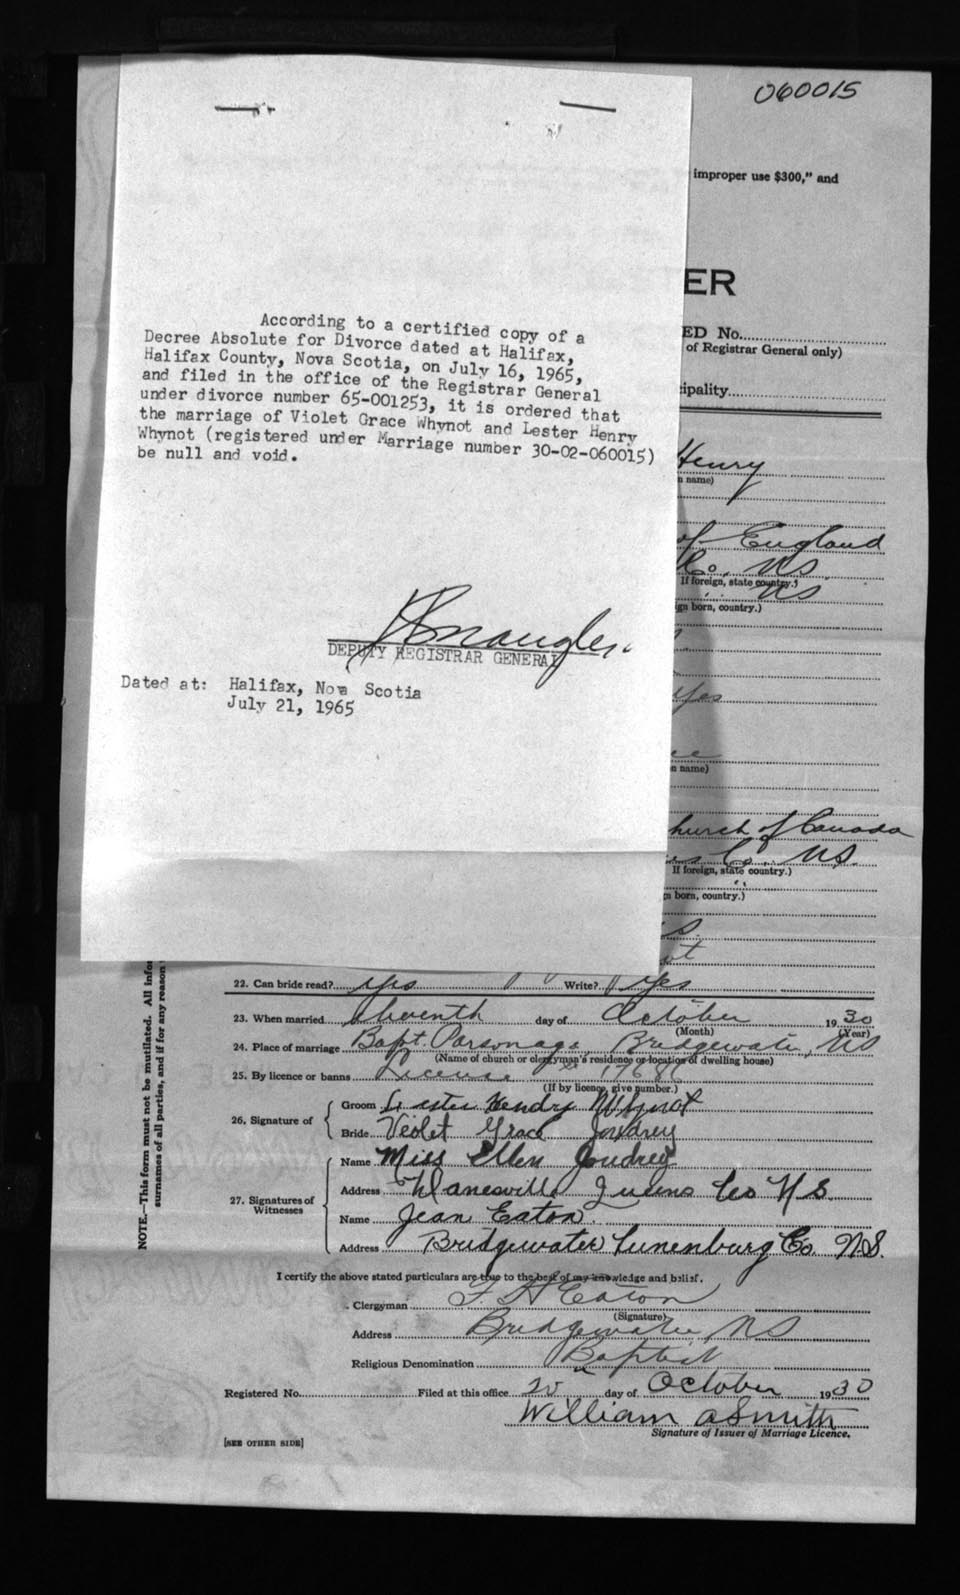 060015
improper use $300," and
ER
ED No.
of Registrar General only)
cipality
According to a certified copy of a
Decree Absolute for Divorce dated at Halifax,
Halifax County, Nova Scotia, on July 16, 1965,
and filed in the office of the Registrar General
under divorce number 65-001253, it is ordered that
the marriage of Violet Grace Whynot and Lester Henry
Whynot (registered under Marriage number 30-02-060015)
be null and void.
DEPUTY REGISTRAR GENERAL
Dated at: Halifax, Nova Scotia
July 21, 1965
Henry
n name)
of England
Co. NS.
If foreign, state country.)
" NS
ign born, country.)
Yes
n name)
hurch of Canada
Co. NS.
If foreign, state country.)
n born, country.)
22. Can bride read? yes Write? Yes
23. When married eleventh day of October 1930
(Month) (Year)
24. Place of marriage Bapt. Parsonage Bridgewater, NS
(Name of church or clergyman's residence or location of dwelling house)
25. By licence or banns License
(If by licence, give number.)
26. Signature of Groom Lester Hendry Whynot
Bride Veolet Grace Joudrey
27. Signatures of Witnesses
Name Miss Ellen Joudrey
Address Danesville Queens Co N.S.
Name Jean Eaton.
Address Bridgewater Lunenburg Co. N.S.
I certify the above stated particulars are true to the best of my knowledge and belief.
Clergyman F. H Eaton
(Signature)
Address Bridgewater NS
Religious Denomination Baptist
Registered No. Filed at this office 20 day of October 1930
William A Smith
Signature of Issuer of Marriage Licence.
[SEE OTHER SIDE]
NOTE.—This form must not be mutilated. All infor
surnames of all parties, and if for any reason